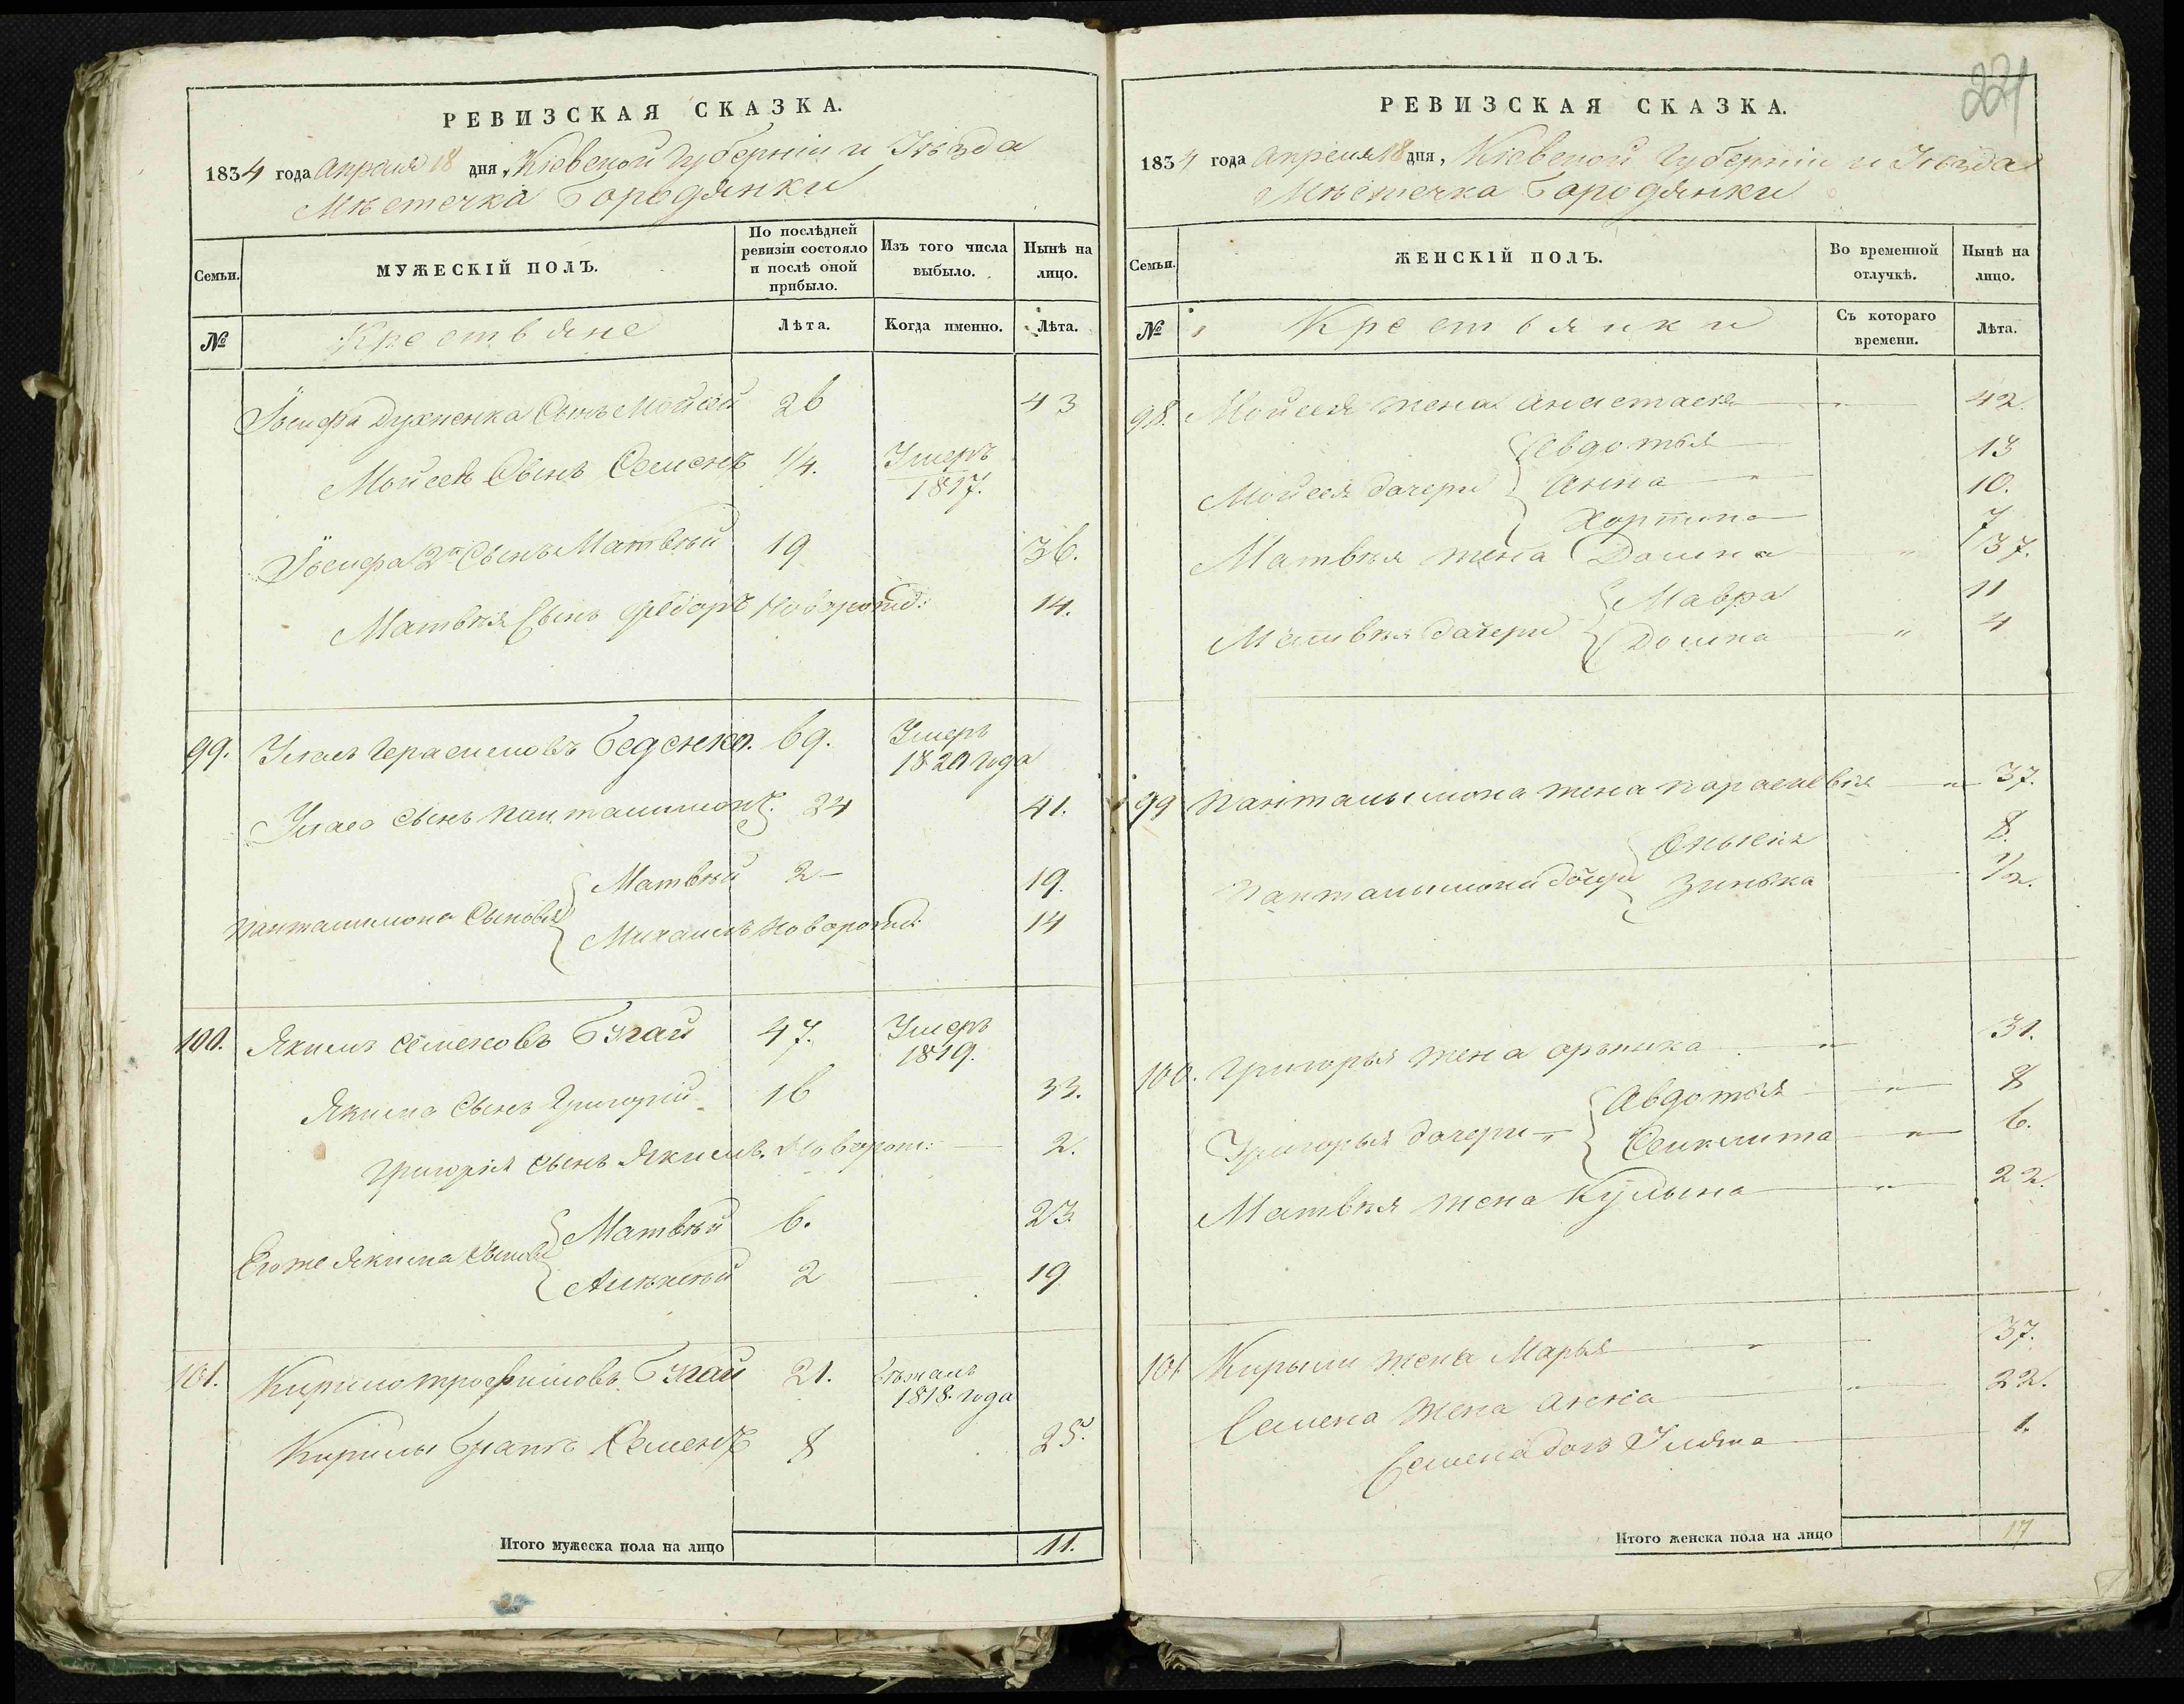 РЕВИЗСКАЯ СКАЗКА.
1834 года Апреля 18 дня, Кіевской Губерніи и Уѣзда
Мѣстечка Бородянки
Семьи.
МУЖЕСКІЙ ПОЛЪ.
По послѣдней ревизіи состояло и послѣ оной прибыло.
Изъ того числа выбыло.
Нынѣ на лицо.
№
Крестьяне
Лѣта.
Когда именно.
Лѣта.
Іосифа Духненка Сынъ Мойсей 26 43
Мойсея Сынъ Семенъ 1/4. Умеръ 1817.
Іосифа 2й Сынъ Матвѣй 19 36.
Матвѣя Сынъ Федоръ Новорожд: 14.
99. Улас Герасимовъ Беденко. 69. Умеръ 1820 Года
Уласа Сынъ Панталимонъ. 24 41.
Панталимона Сыновья Матвѣй 2 19.
Михаилъ Новорожд: 14
100. Якимъ Семеновъ Бугай 47. Умеръ 1819.
Якима Сынъ Григорій 16 33.
Григорія Сынъ Якимъ. Новорож: 2.
Его же Якима Сыновья Матвѣй 6. 23.
Алексѣй 2 19
101. Кирило Трофимовъ Бугай 21. Бѣжалъ 1818. Года
Кирилы Братъ Семенъ 8 25.
Итого мужеска пола на лицо 11.
221
РЕВИЗСКАЯ СКАЗКА.
1834 года Апреля 18 дня, Кіевской Губерніи и Уѣзда
Мѣстечка Бородянки
Семьи.
ЖЕНСКІЙ ПОЛЪ.
Во временной отлучкѣ.
Нынѣ на лицо.
№
Крестьянки
Съ котораго времени.
Лѣта.
98. Мойсея жена Анастасія 42.
Мойсея дочери Евдотья 13
Анна 10.
Хортина 7
Матвѣя жена Домна 37.
Матвѣя дочери Мавра 11
Домна 4
99 Панталымона жена Параскевія 37.
Панталымона дочери 8.
Зинька 1/2.
100. Григорья жена Орышка 31.
Григорья дочери Авдотья 8
Секлита 6.
Матвѣя жена Кулына 22.
101 Кирылы жена Марья 37.
Семена жена Анна 22.
Семена дочь Уляна 1.
Итого женска пола на лицо 17